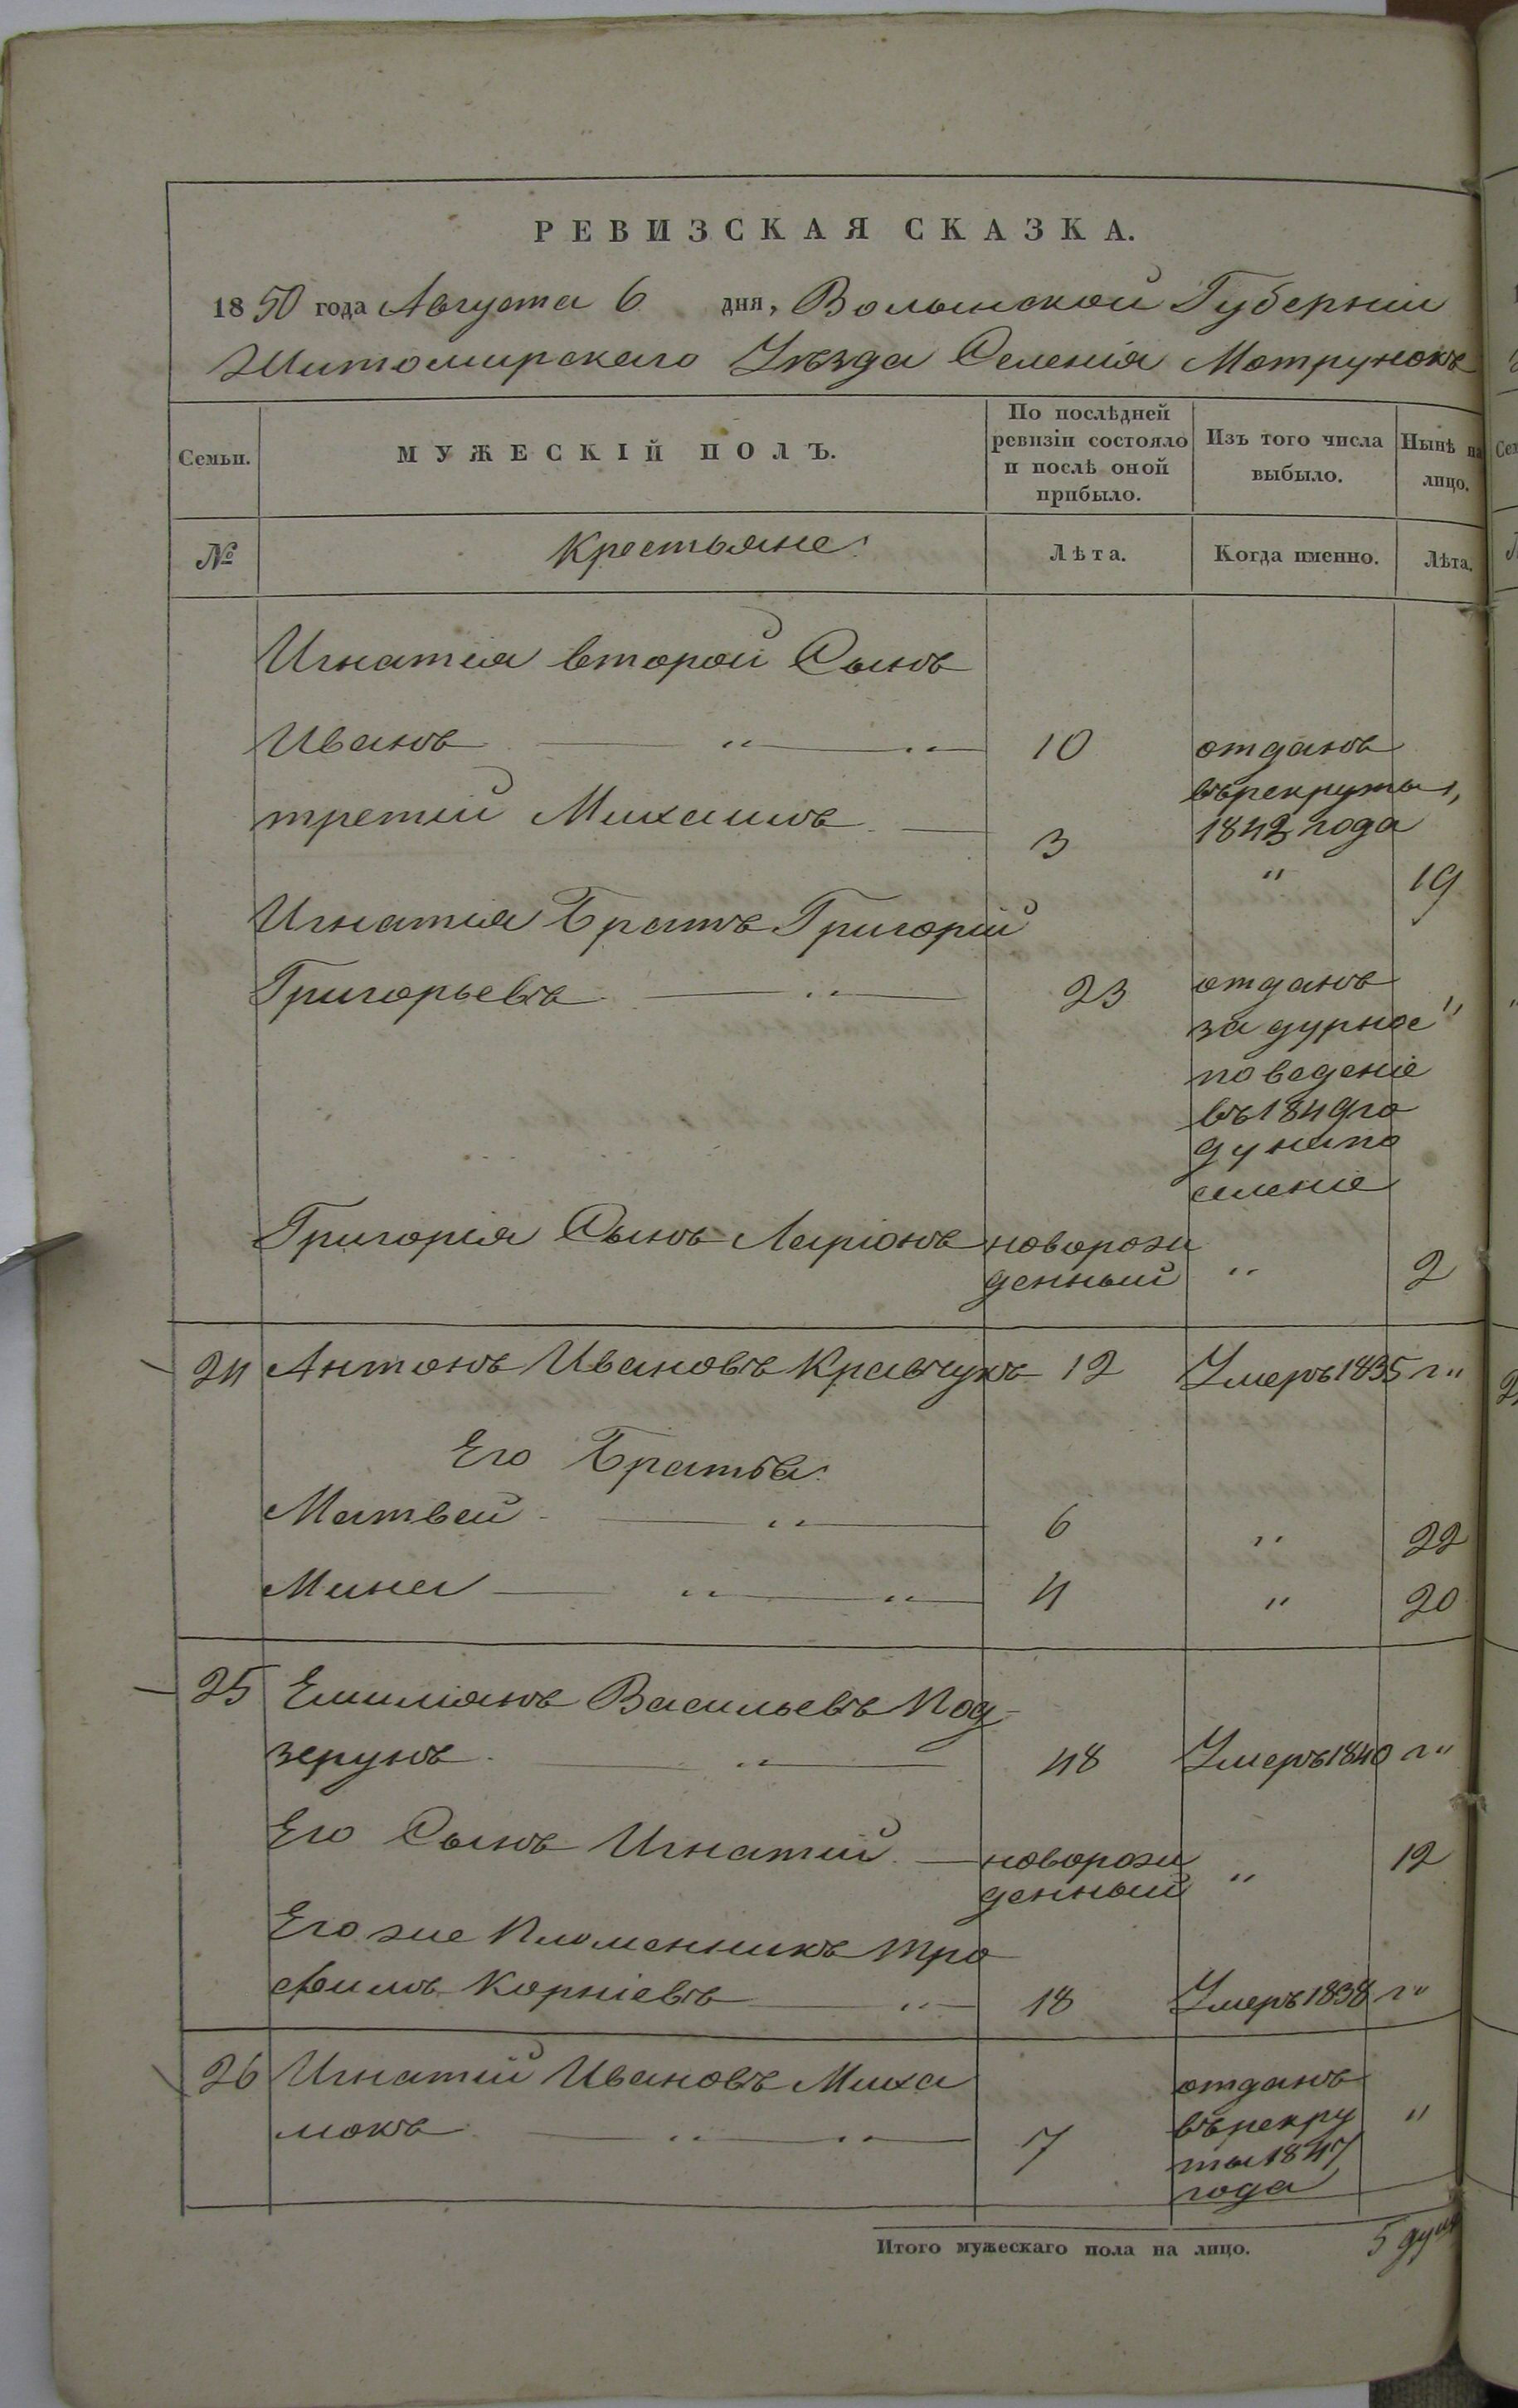 РЕВИЗСКАЯ СКАЗКА.
1850 года Августа 6 дня, Волынской Губерніи
Житомирскаго Уѣзда Селенія Мотрунокъ
Семьи. МУЖЕСКІЙ ПОЛЪ. По послѣдней ревизіи состояло и послѣ оной прибыло. Изъ того числа выбыло. Нынѣ на лицо.
№ Крестьяне: Лѣта. Когда именно. Лѣта.
Игнатія второй Сынъ
Иванъ — " — " — 10 отданъ
въ рекруты "
третій Михаилъ — 3 1843 года
" 19
Игнатія Братъ Григорій
Григорьевъ — " — 23 отданъ
за дурное "
поведеніе
въ 1849 го
ду на по
селеніе
Григорія Сынъ Ларіонъ новорож
денный " 2
24 Антонъ Ивановъ Кравчукъ 12 Умеръ 1835 г "
Его Братья:
Матвей — " — 6 " 22
Мина — " — " — 4 " 20
25 Емиліянъ Васильевъ Под
зерунъ — " — 48 Умеръ 1840 г "
Его Сынъ Игнатій — новорож
денный " 12
Его же Племенникъ Тро
фимъ Корніевъ — " — 18 Умеръ 1838 г "
26 Игнатій Ивановъ Миха
люкъ — " — " — 7 отданъ
въ рекру "
ты 1847
года
Итого мужескаго пола на лицо. 5 душ